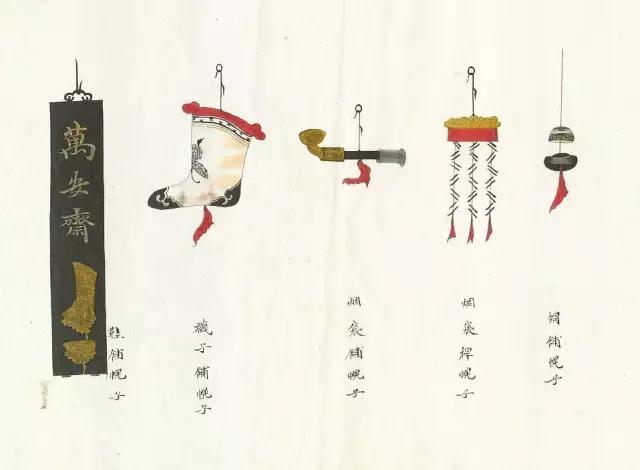 鋪幌子
烟袋桿幌子
烟袋鋪幌子
襪子鋪幌子
鞋鋪幌子
萬安齋